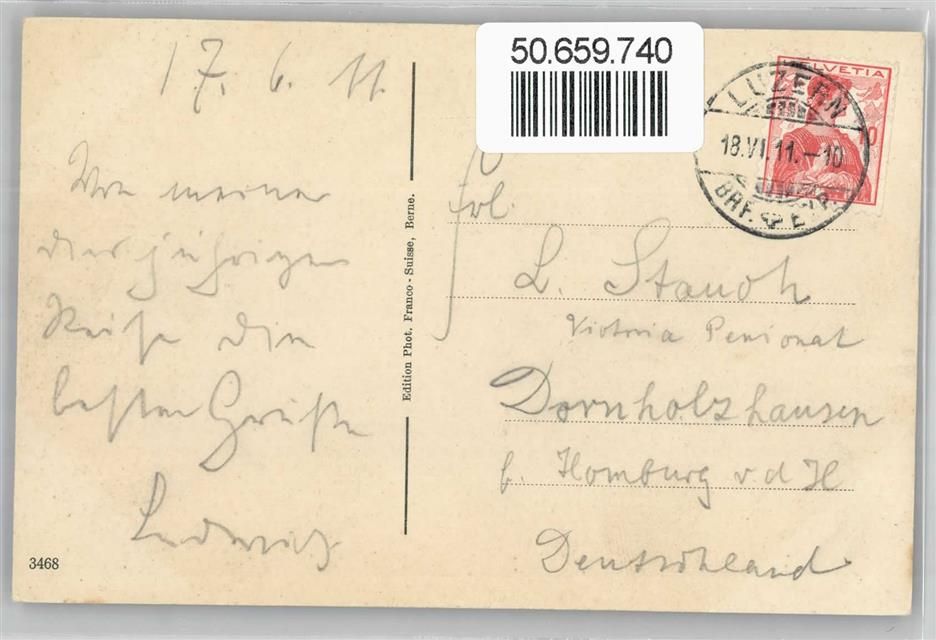 17. 6. 11.
Von meiner
diesjährigen
Reise die
besten Grüße
Ludwig
3468
Edition Phot. Franco-Suisse, Berne.
50.659.740
HELVETIA
10
LUZERN
18.VI.11.-10
BRF. EXP.
Frl.
L. Stauch
Victoria Pensionat
Dornholzhausen
b. Homburg v. d H
Deutschland